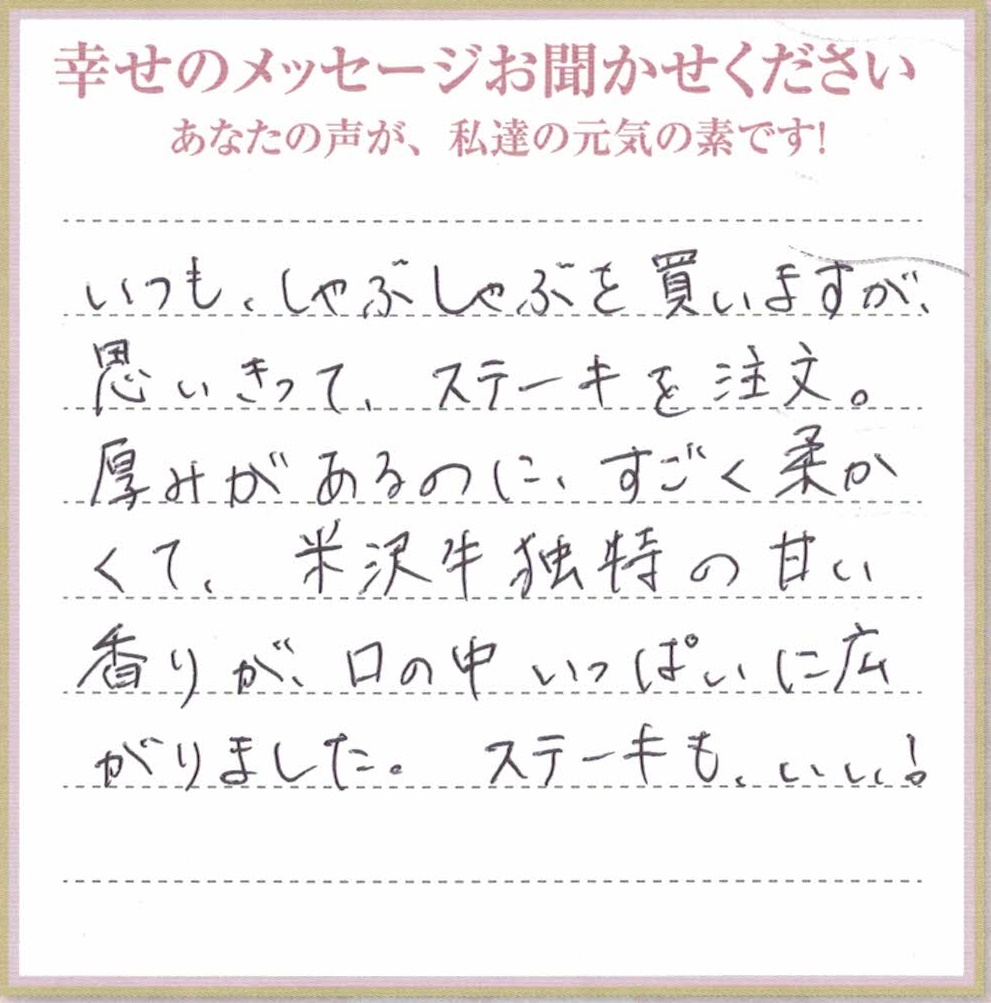 幸せのメッセージお聞かせください
あなたの声が、私達の元気の素です!
いつも、しゃぶしゃぶを買いますが、
思いきって、ステーキを注文。
厚みがあるのに、すごく柔か
くて、米沢牛独特の甘い
香りが、口の中いっぱいに広
がりました。ステーキも、いい!